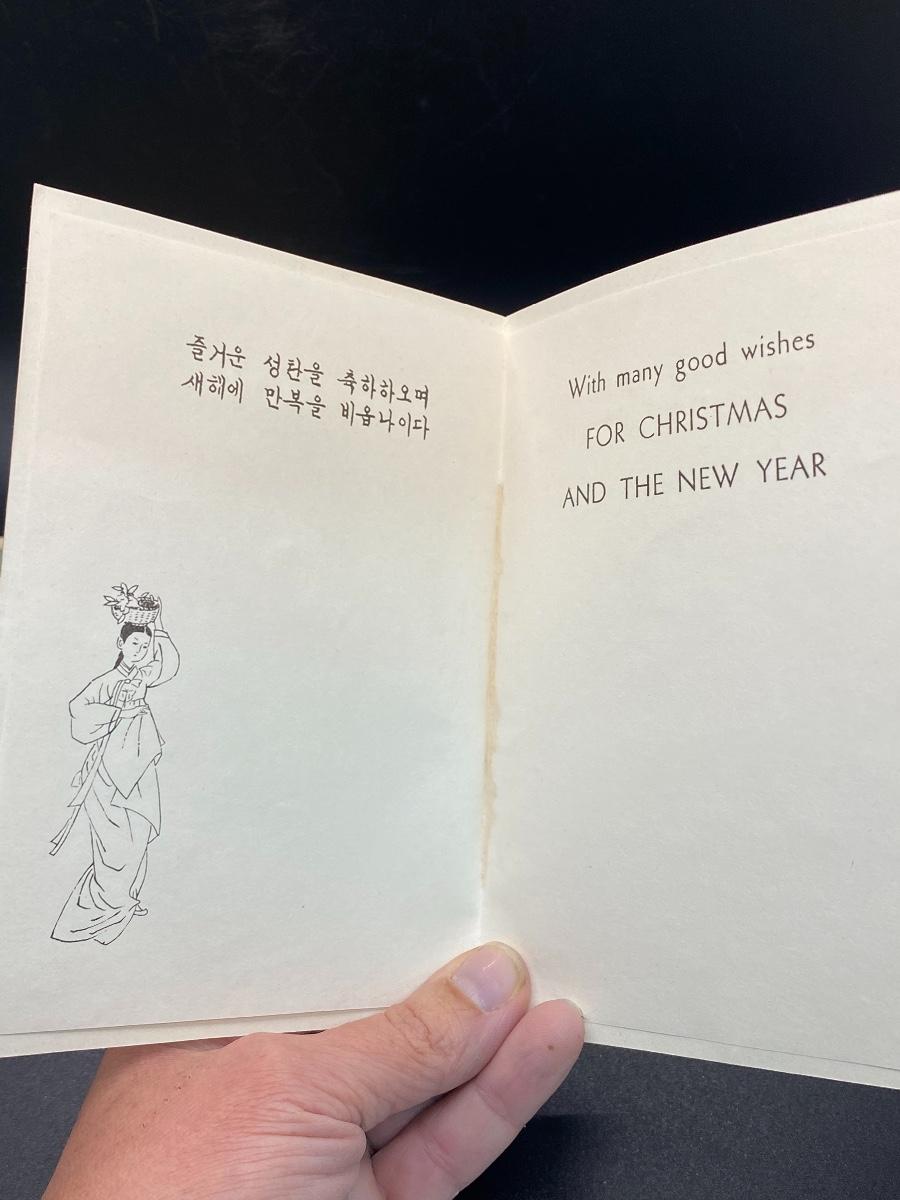 즐거운 성탄을 축하하오며
새해에 만복을 비옵나이다
With many good wishes
FOR CHRISTMAS
AND THE NEW YEAR